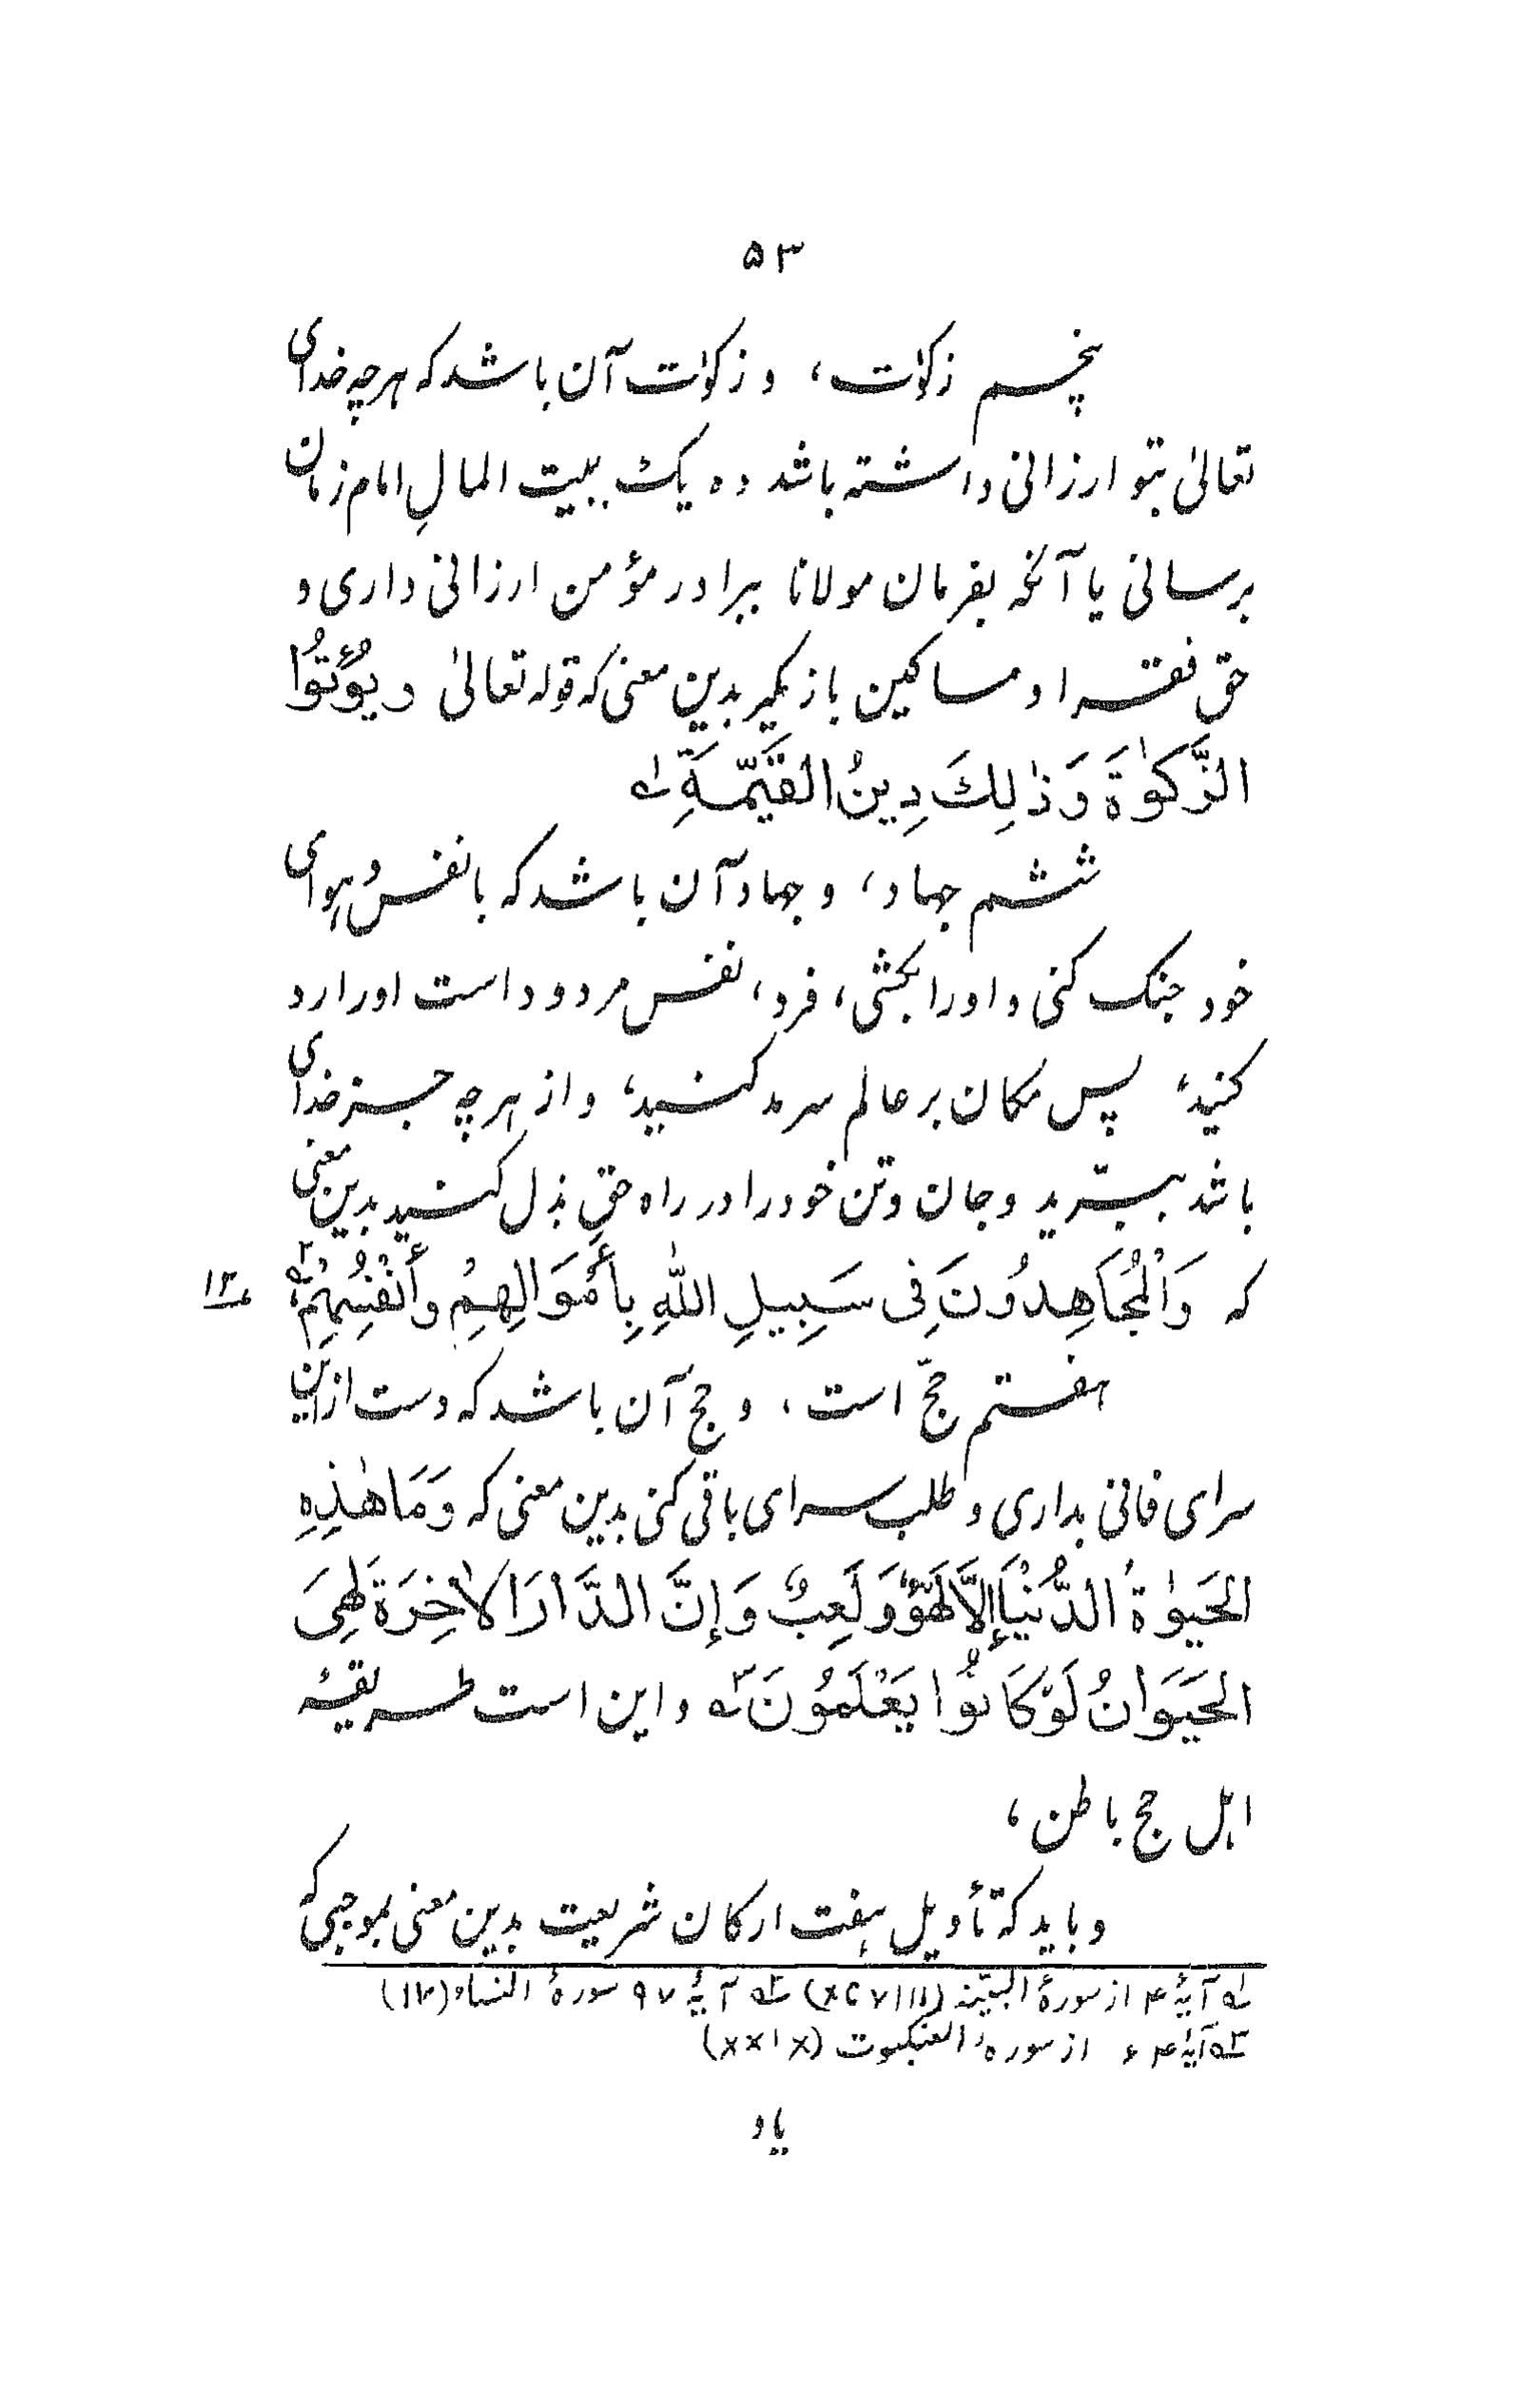 ۵۳
پنجم زکوٰت، و زکوٰت آن باشد که هرچه خدای
تعالیٰ بتو ارزانی داشته باشد ده یک ببیت المالِ امام زمان
برسانی یا آنکه بفرمان مولانا ببرادر مؤمن ارزانی داری و
حق فقرا و مساکین بازگیر بدین معنی که قوله تعالیٰ و یُؤْتُوا
الزَّکوٰةَ وَ ذٰلِكَ دِینُ القَیِّمَةِ ؎۱
ششم جهاد، و جهاد آن باشد که با نفس و هوای
خود جنک کنی و او را بکشی، فرد، نفس مردود است او را رد
کنید، پس مکان بر عالم سرمد کنید، و از هرچه جز خدای
باشد ببرّید و جان و تن خود را در راه حق بذل کنید بدین معنی
که وَالْمُجَاهِدُونَ فِی سَبِیلِ اللّٰهِ بِأَمْوَالِهِمْ وَأَنْفُسِهِمْ ؎۲
۱۳ء
هفتم حجّ است، و حج آن باشد که دست ازین
سرای فانی بداری و طلب سرای باقی کنی بدین معنی که وَمَا هٰذِهِ
الحَیوٰةُ الدُّنْیَا إِلَّا لَهْوٌ وَ لَعِبٌ وَ إِنَّ الدَّارَ الاٰخِرَةَ لَهِیَ
الحَیَوَانُ لَوْ کَانُوا یَعْلَمُونَ ؎۳ و این است طریقهٔ
اهل حج باطن،
و باید که تأویل هفت ارکان شریعت بدین معنی بموجبی که
؎۱ آیهٔ ۴ از سورهٔ البیّنه (XCVIII) ؎۲ آیهٔ ۹۷ سورهٔ النساء (IV)
؎۳ آیهٔ ۶۴ از سورهٔ العنکبوت (XXIX)
یاد